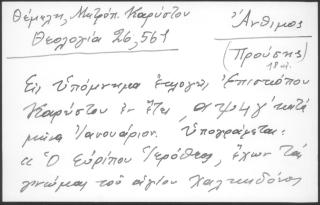 Θέμελη, Μητρόπ. Καρύστου
Θεολογία 26, 561
Ἄνθιμος
(Προύσης)
18 αἰ.
Εἰς Ὑπόμνημα ἐκλογῆς Ἐπισκόπου
Καρύστου ἐν ἔτει αψνγʹ κατὰ
μῆνα Ἰανουάριον. Ὑπογράφεται:
Ὁ Εὐρίπου Ἱερόθεος, ἔχων τὰς
γνώμας τοῦ ἁγίου Χαλκηδόνος